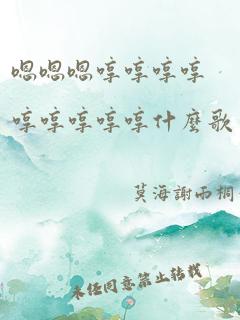 嗯嗯嗯哼哼哼哼
哼哼哼哼哼什麼歌
莫海謝雨桐
未经同意禁止转载